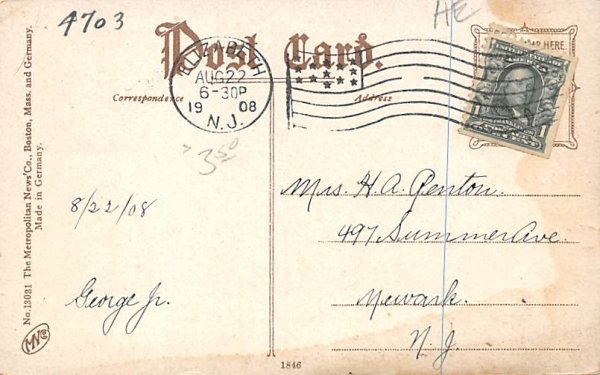 4703
HE
Post Card.
HERE.
ELIZABETH
AUG 22
6-30P
1908
N.J.
Correspondence
Address
1
3.50
8/22/08
George Jr.
Mrs. H. A. Penton.
497 Summer Ave
Newark.
N. J.
No. 13031 The Metropolitan News Co., Boston, Mass. and Germany.
Made in Germany.
1846